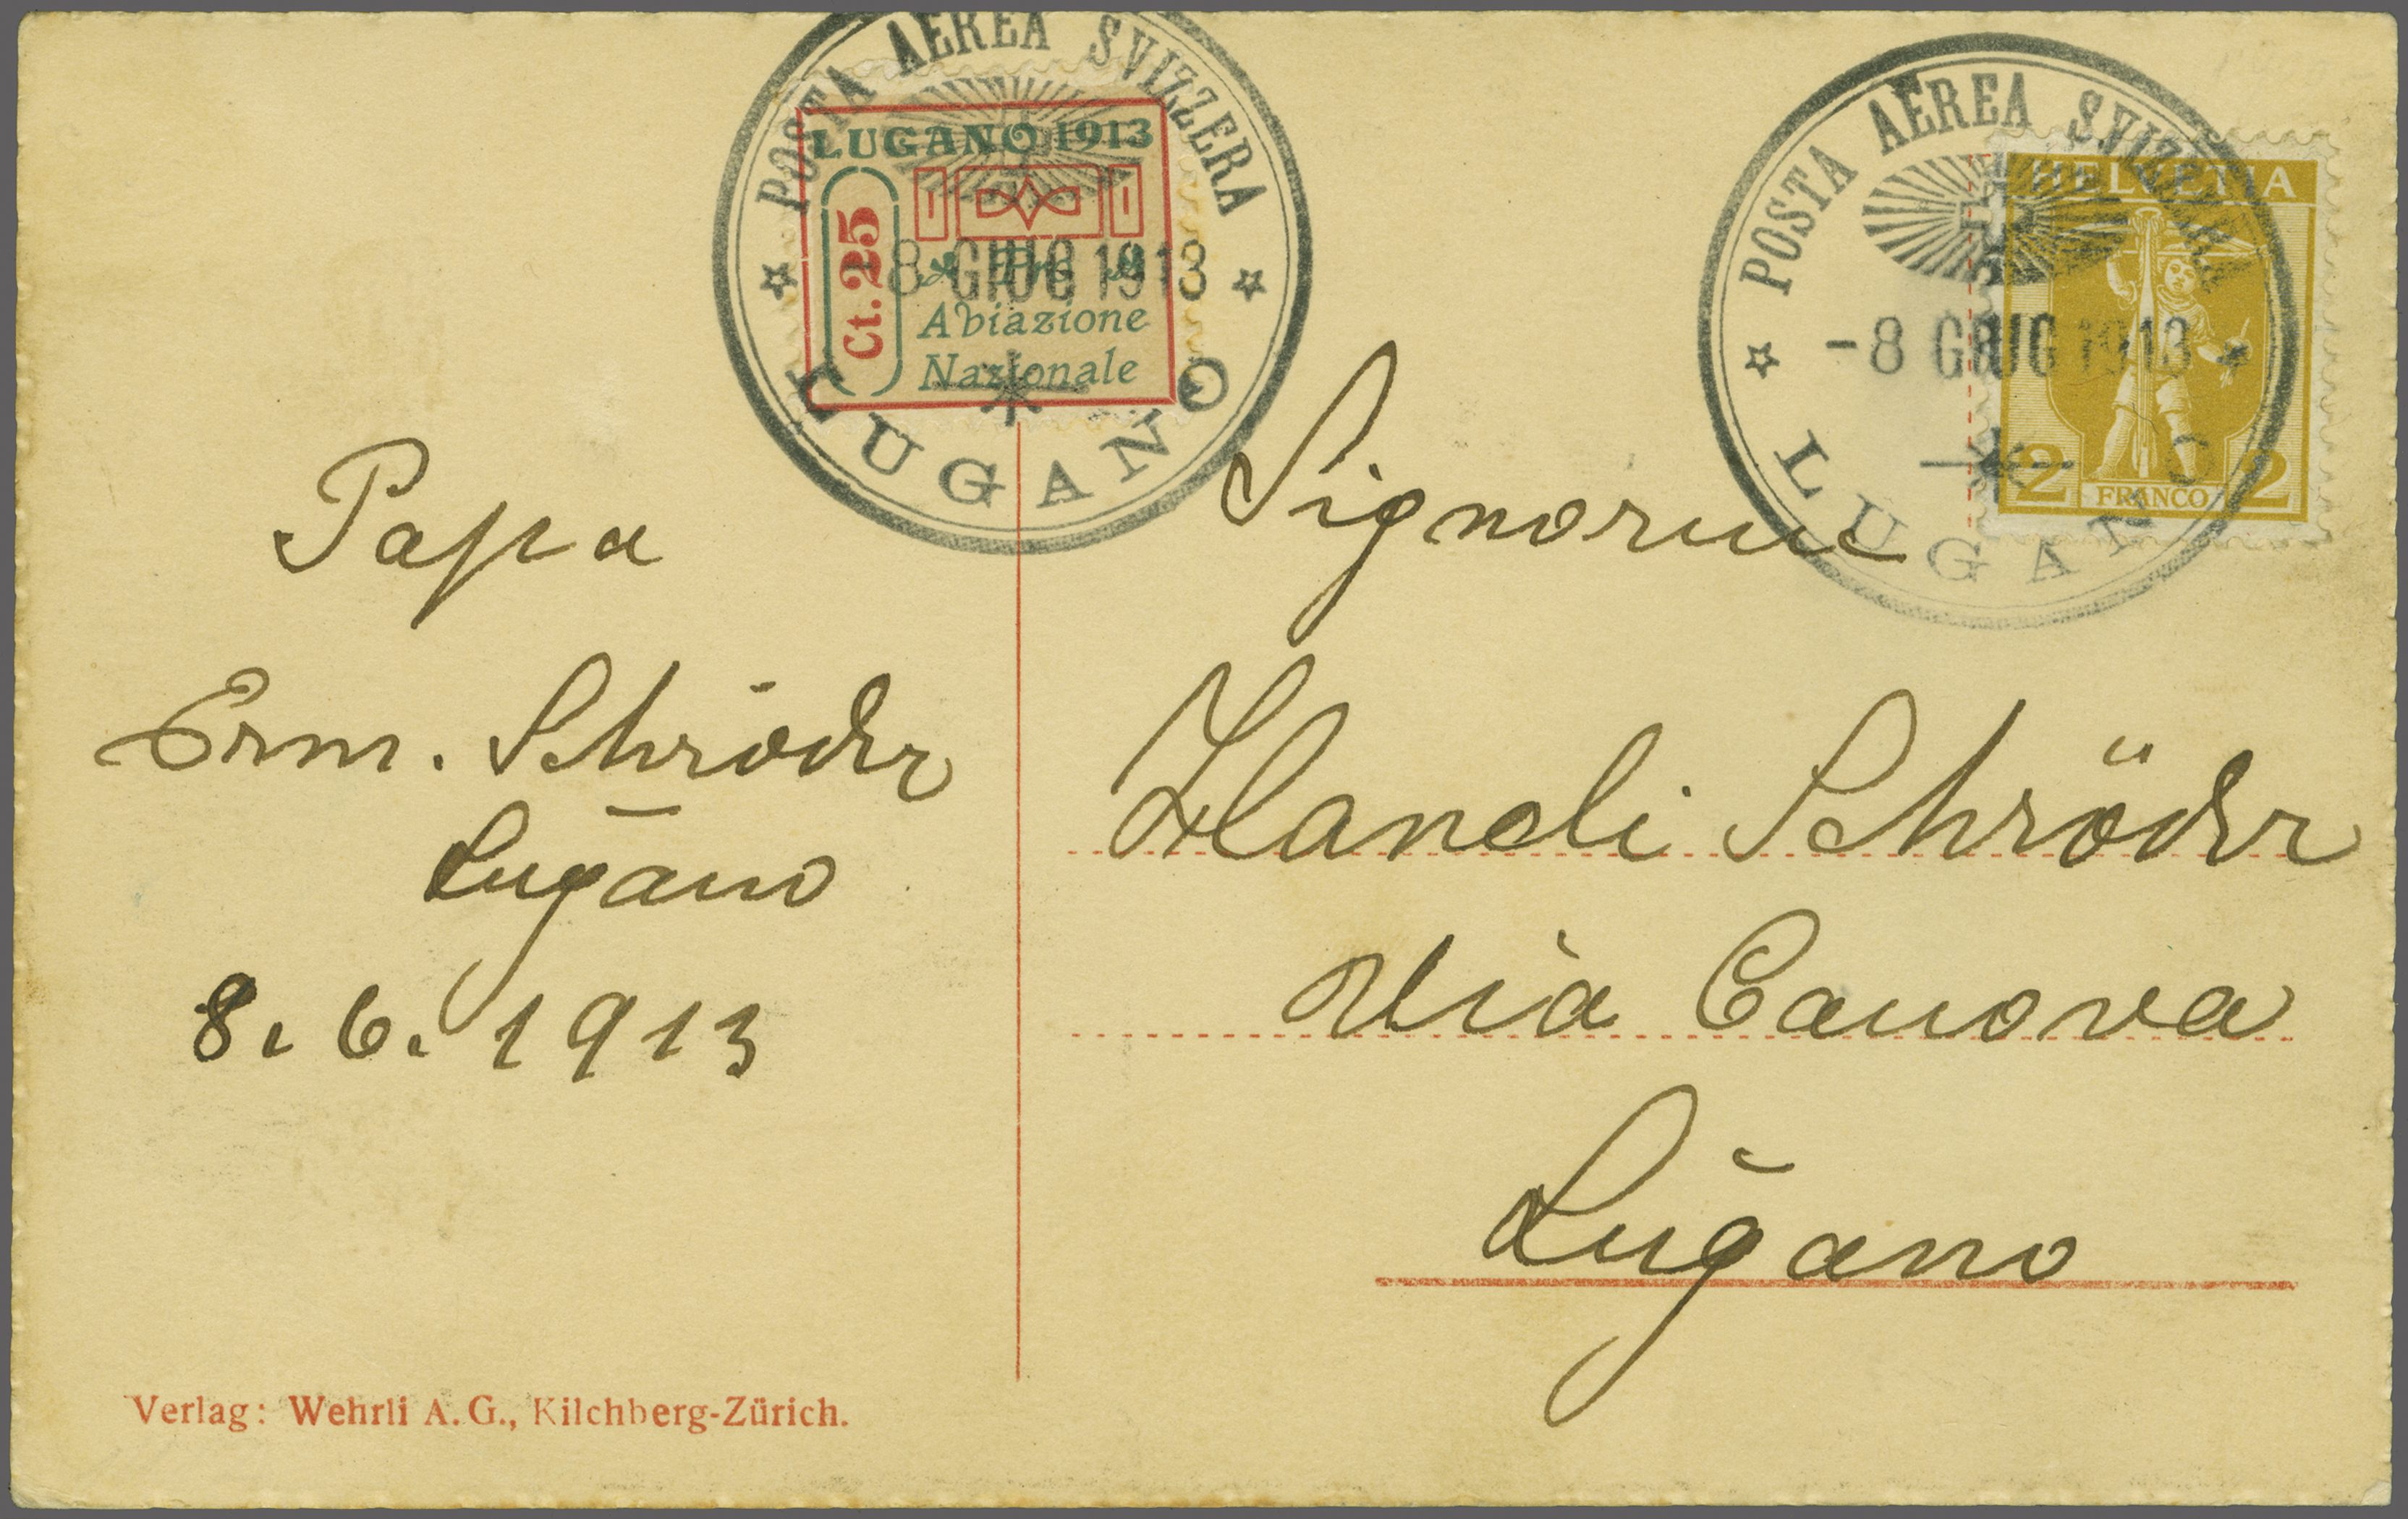 POSTA AEREA SVIZZERA
LUGANO 1913
Ct. 25
Pro
Aviazione
Nazionale
-8 GIUG 1913
LUGANO
POSTA AEREA SVIZZERA
-8 GIUG 1913
LUGANO
HELVETIA
2 FRANCO 2
Papa
Erm. Schröder
Lugano
8. 6. 1913
Signorina
Schröder
Via Canova
Lugano
Verlag: Wehrli A. G., Kilchberg-Zürich.